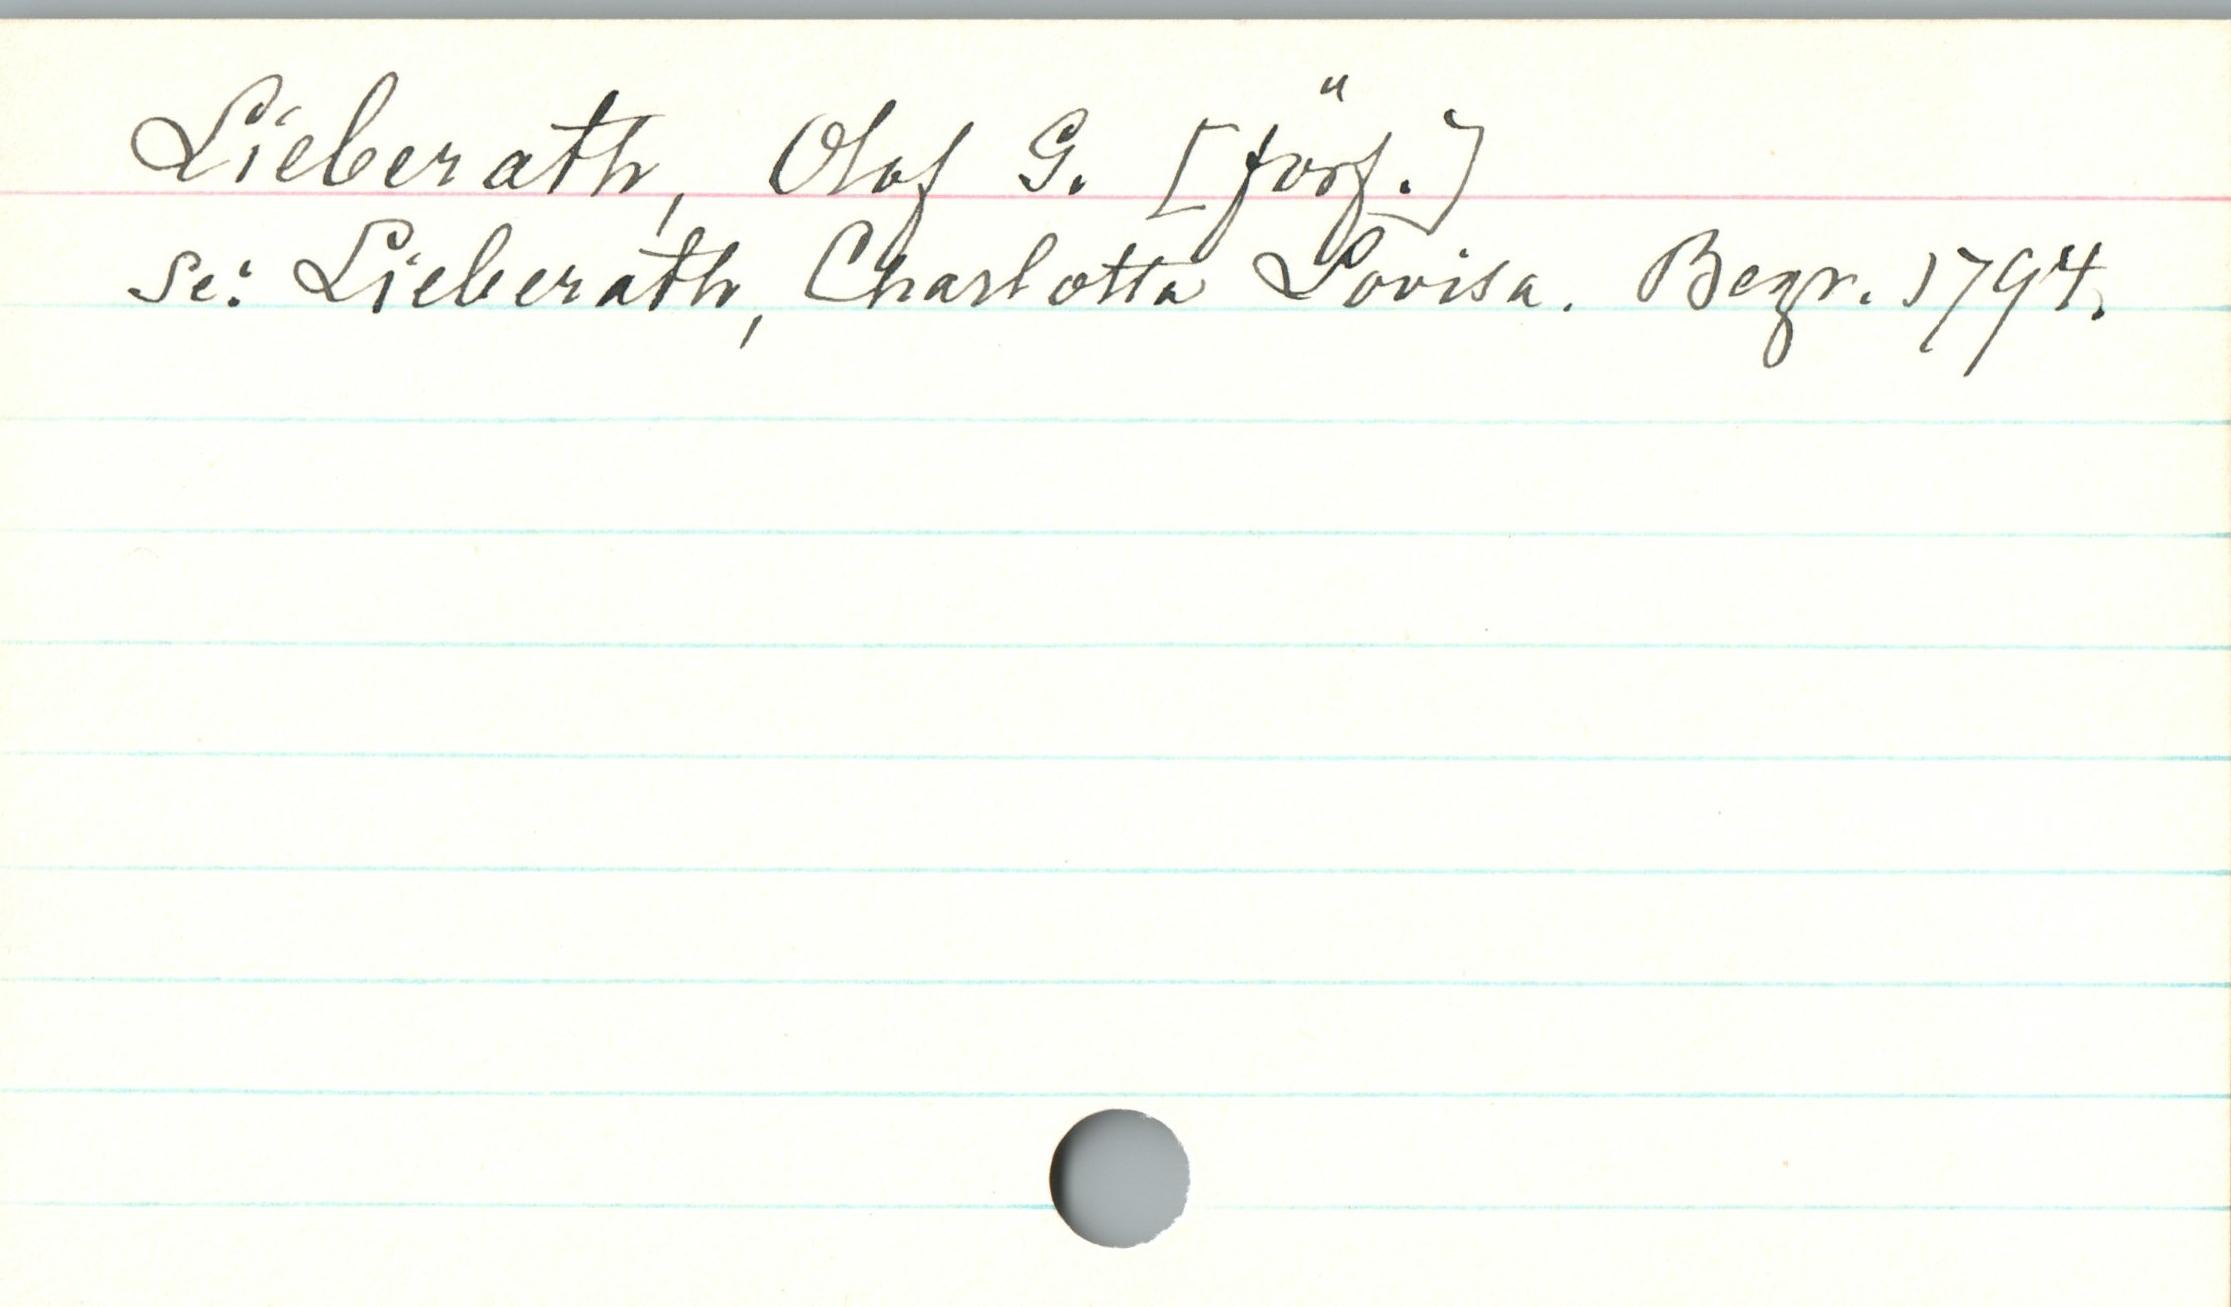 Lieberath, Olof G. [förf.]
se: Lieberath, Charlotta Lovisa. Begr. 1794.